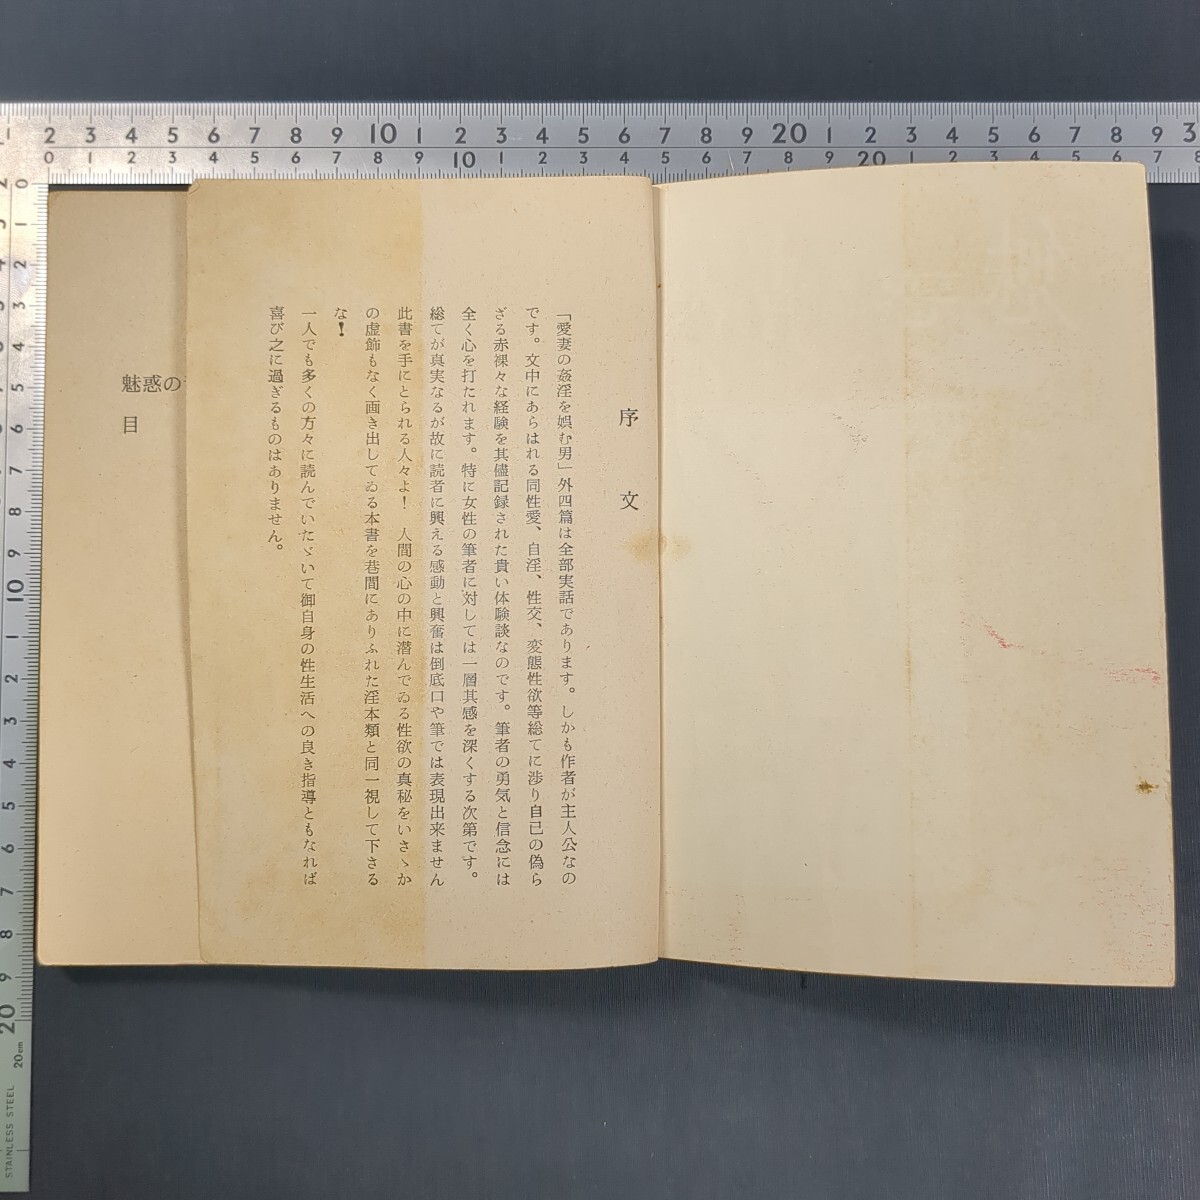 序文
「愛妻の姦淫を娯む男」外四篇は全部実話であります。しかも作者が主人公なの
です。文中にあらはれる同性愛、自淫、性交、変態性欲等総てに渉り自己の偽ら
ざる赤裸々な経験を其儘記録された貴い体験談なのです。筆者の勇気と信念には
全く心を打たれます。特に女性の筆者に対しては一層其感を深くする次第です。
総てが真実なるが故に読者に興える感動と興奮は倒底口や筆では表現出来ません
此書を手にとられる人々よ！　人間の心の中に潜んでゐる性欲の真秘をいさゝか
の虚飾もなく画き出してゐる本書を巷間にありふれた淫本類と同一視して下さる
な！
一人でも多くの方々に読んでいたゞいて御自身の性生活への良き指導ともなれば
喜び之に過ぎるものはありません。
魅惑の
目
2 3 4 5 6 7 8 9 10 1 2 3 4 5 6 7 8 9 20 1 2 3 4 5 6 7 8 9 3
0 1 2 3 4 5 6 7 8 9 10 1 2 3 4 5 6 7 8 9 20 1 2 3 4 5 6 7 8
0 1 2 3 4 5 6 7 8 9 10 1 2 3 4 5 6 7 8 9 20
20cm
STAINLESS STEEL